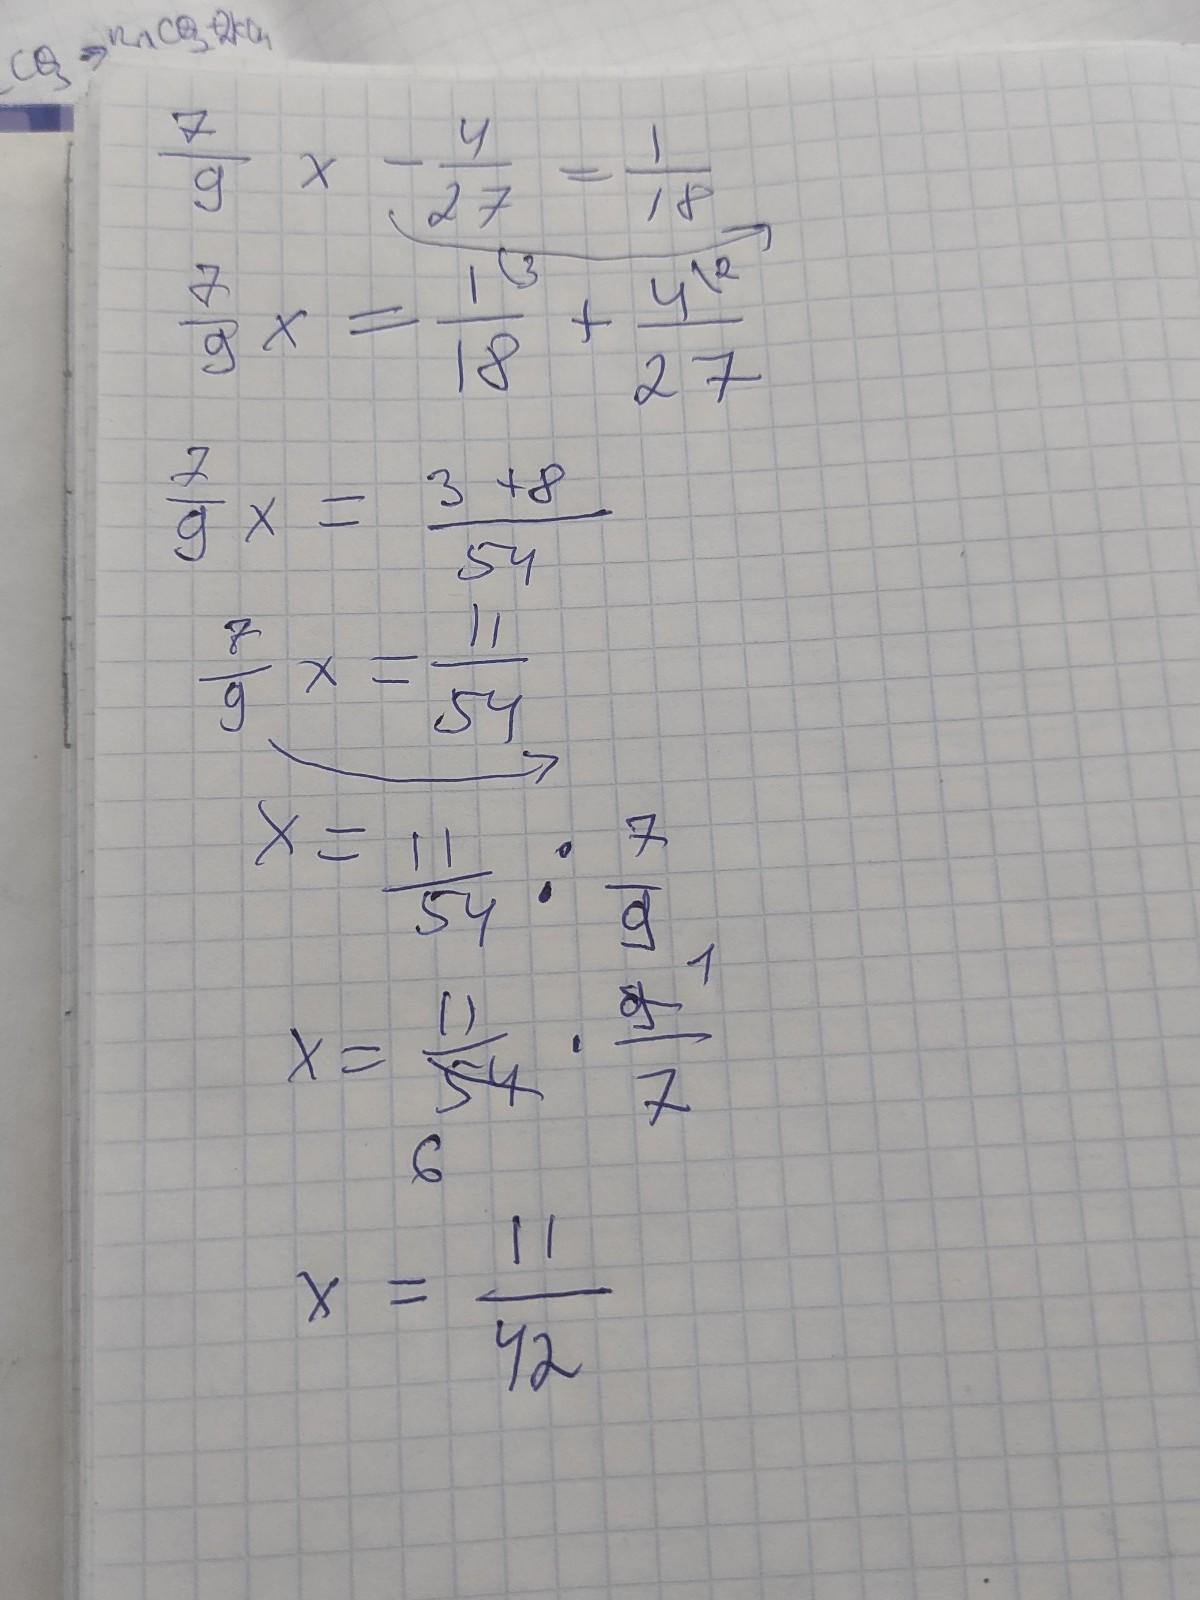 7/9 x - 4/27 = 1/18
7/9 x = 1\3/18 + 4\2/27
7/9 x = 3 + 8/54
7/9 x = 11/54
x = 11/54 : 7/9
x = 11/54 · 9/7 1
6
x = 11/42